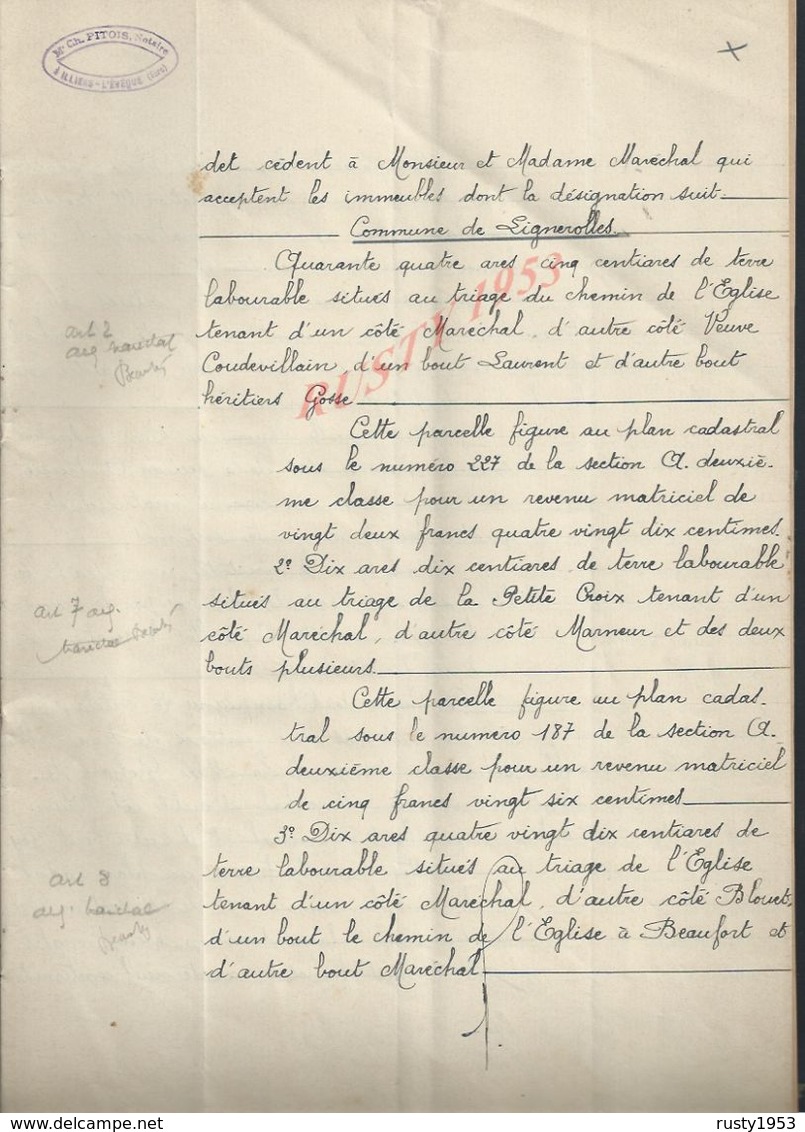 Me Ch. PITOIS, Notaire
à ILLIERS - L'EVÊQUE (Eure)
det cèdent à Monsieur et Madame Maréchal qui
acceptent les immeubles dont la désignation suit.
Commune de Lignerolles.
Quarante quatre ares cinq centiares de terre
labourable situés au triage du chemin de l'Eglise
tenant d'un côté Maréchal, d'autre côté Veuve
Coudevillain, d'un bout Laurent et d'autre bout
héritiers Gosse
Cette parcelle figure au plan cadastral
sous le numéro 227 de la section A. deuxiè-
me classe pour un revenu matriciel de
vingt deux francs quatre vingt dix centimes.
2° Dix ares dix centiares de terre labourable
situés au triage de la Petite Croix tenant d'un
côté Maréchal, d'autre côté Marneur et des deux
bouts plusieurs
Cette parcelle figure au plan cadas-
tral sous le numéro 187 de la section A.
deuxième classe pour un revenu matriciel
de cinq francs vingt six centimes
3° Dix ares quatre vingt dix centiares de
terre labourable situés au triage de l'Eglise
tenant d'un côté Maréchal, d'autre côté Blouet,
d'un bout le chemin de l'Eglise à Beaufort et
d'autre bout Maréchal
art 2
art 7
art 8
RUSTY 1953
rusty1953